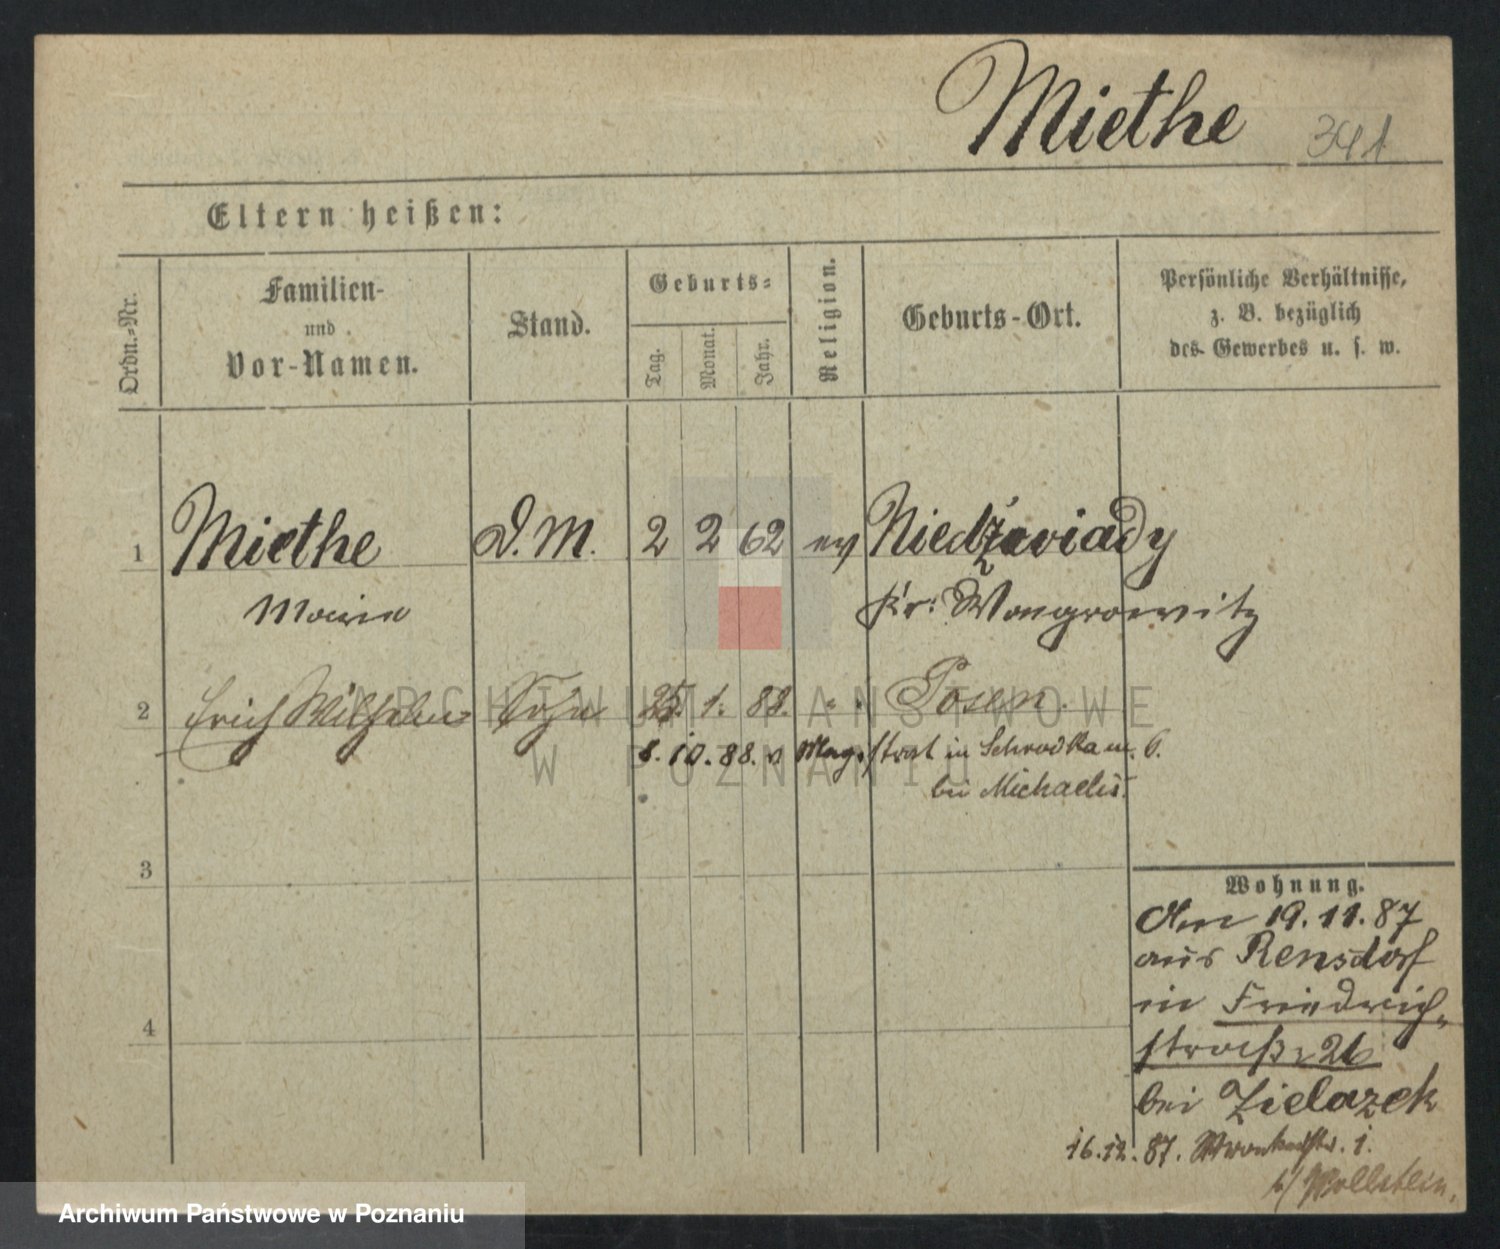 Miethe 341
Eltern heißen:
Ordn.-Nr.
Familien-
und
Vor-Namen.
Stand.
Geburts-
Tag.
Monat.
Jahr.
Religion.
Geburts-Ort.
Persönliche Verhältnisse,
z. B. bezüglich
des Gewerbes u. s. w.
1 Miethe D. M. 2 2 62 ev Niedźwiady
Marie Kr: Wongrowitz
2 Erich Wilhelm Sohn 25. 1. 88. " Posen.
8. 10. 88. v Magistrat in Schrodka m. 6.
bei Michaelis.
3
4
Wohnung.
Am 19.11.87
aus Rensdorf
in Friedrich-
straße 26
bei Zielazek
16.12.87. Wronkerstr. 1.
b/ Wollstein.
ARCHIWUM PAŃSTWOWE
W POZNANIU
Archiwum Państwowe w Poznaniu